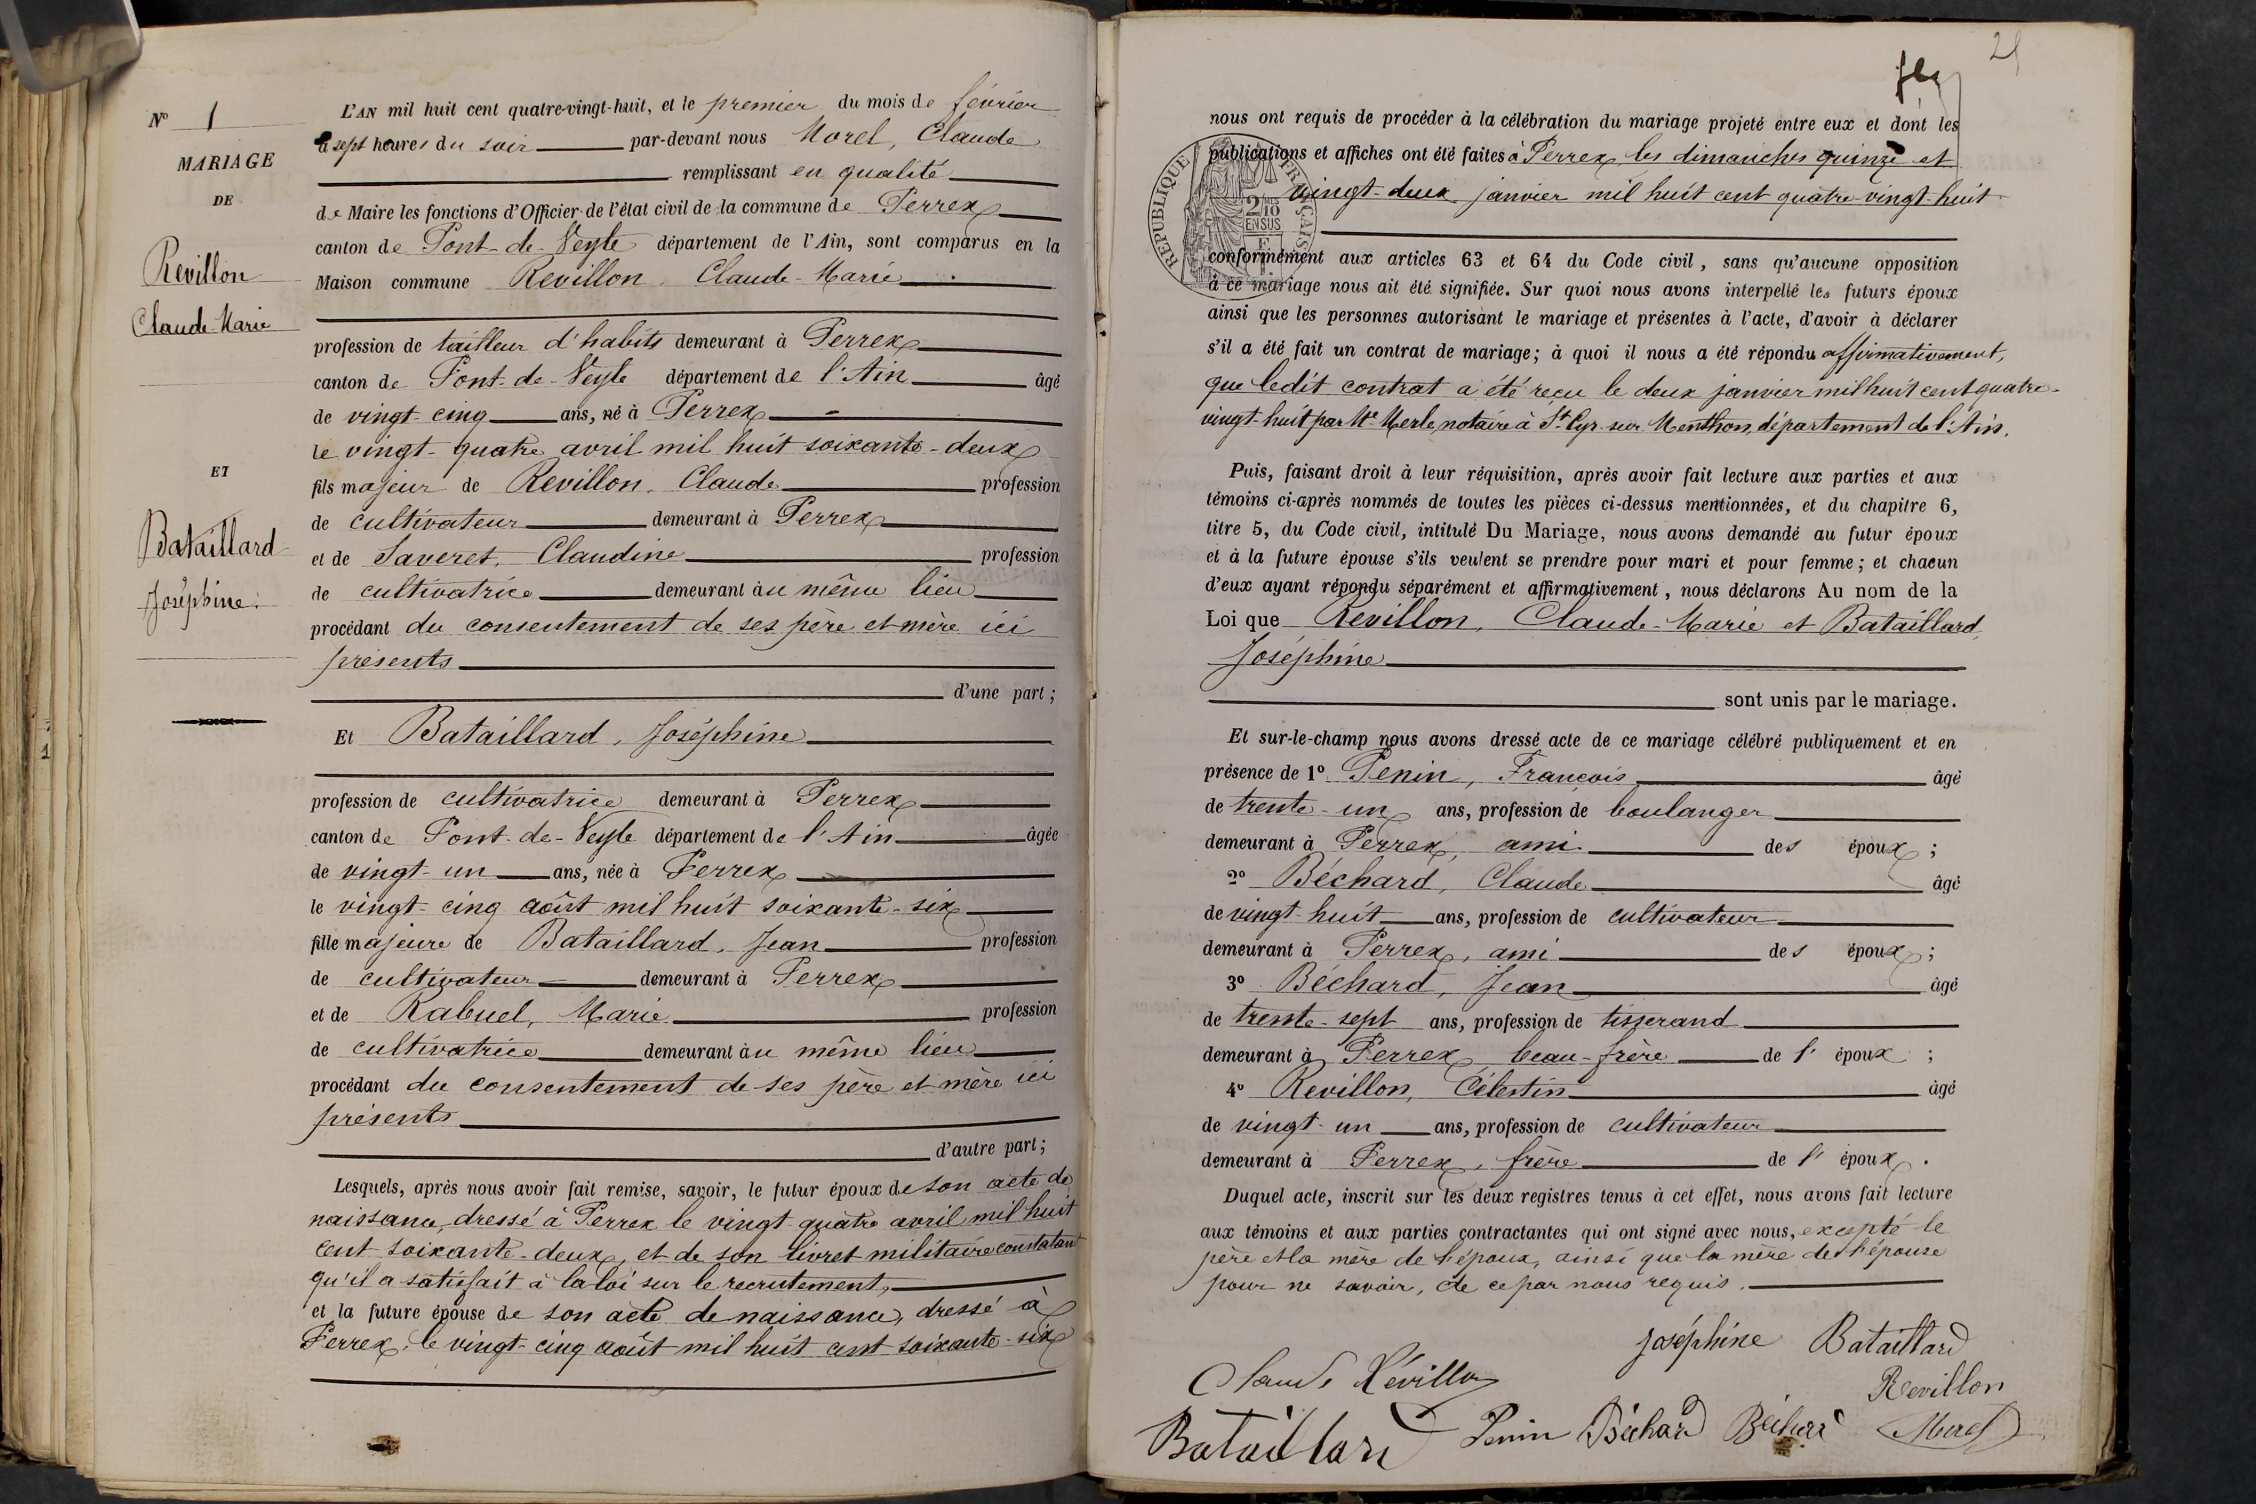 Nº 1
MARIAGE
DE
Revillon
Claude-Marie
ET
Bataillard
Joséphine.
L'AN mil huit cent quatre-vingt-huit, et le premier du mois de février
à sept heures du soir par-devant nous Morel, Claude
remplissant en qualité
de Maire les fonctions d'Officier de l'état civil de la commune de Perrex
canton de Pont-de-Veyle département de l'Ain, sont comparus en la
Maison commune Revillon, Claude-Marie
profession de tailleur d'habits demeurant à Perrex
canton de Pont-de-Veyle département de l'Ain âgé
de vingt-cinq ans, né à Perrex
le vingt-quatre avril mil huit soixante-deux
fils majeur de Revillon, Claude profession
de cultivateur demeurant à Perrex
et de Saveret, Claudine profession
de cultivatrice demeurant au même lieu
procédant du consentement de ses père et mère ici
présents
d'une part;
Et Bataillard, Joséphine
profession de cultivatrice demeurant à Perrex
canton de Pont-de-Veyle département de l'Ain âgée
de vingt-un ans, née à Perrex
le vingt-cinq août mil huit soixante-six
fille majeure de Bataillard, Jean profession
de cultivateur demeurant à Perrex
et de Rabuel, Marie profession
de cultivatrice demeurant au même lieu
procédant du consentement de ses père et mère ici
présents
d'autre part;
Lesquels, après nous avoir fait remise, savoir, le futur époux de son acte de
naissance, dressé à Perrex le vingt-quatre avril mil huit
cent soixante-deux, et de son livret militaire constatant
qu'il a satisfait à la loi sur le recrutement,
et la future épouse de son acte de naissance, dressé à
Perrex, le vingt-cinq août mil huit cent soixante-six
1
21
nous ont requis de procéder à la célébration du mariage projeté entre eux et dont les
publications et affiches ont été faites à Perrex les dimanches quinze et
vingt-deux janvier mil huit cent quatre-vingt-huit
RÉPUBLIQUE FRANÇAISE
2/10 EN SUS
conformément aux articles 63 et 64 du Code civil, sans qu'aucune opposition
à ce mariage nous ait été signifiée. Sur quoi nous avons interpellé les futurs époux
ainsi que les personnes autorisant le mariage et présentes à l'acte, d'avoir à déclarer
s'il a été fait un contrat de mariage; à quoi il nous a été répondu affirmativement,
que ledit contrat a été reçu le deux janvier mil huit cent quatre-
vingt-huit par Mᵉ Merle, notaire à Sᵗ Cyr-sur-Menthon, département de l'Ain.
Puis, faisant droit à leur réquisition, après avoir fait lecture aux parties et aux
témoins ci-après nommés de toutes les pièces ci-dessus mentionnées, et du chapitre 6,
titre 5, du Code civil, intitulé Du Mariage, nous avons demandé au futur époux
et à la future épouse s'ils veulent se prendre pour mari et pour femme; et chacun
d'eux ayant répondu séparément et affirmativement, nous déclarons Au nom de la
Loi que Revillon, Claude-Marie et Bataillard,
Joséphine
sont unis par le mariage.
Et sur-le-champ nous avons dressé acte de ce mariage célébré publiquement et en
présence de 1º Penin, François âgé
de trente-un ans, profession de boulanger
demeurant à Perrex, ami des époux;
2º Béchard, Claude âgé
de vingt-huit ans, profession de cultivateur
demeurant à Perrex, ami des époux;
3º Béchard, Jean âgé
de trente-sept ans, profession de tisserand
demeurant à Perrex, beau-frère de l'époux;
4º Revillon, Célestin âgé
de vingt-un ans, profession de cultivateur
demeurant à Perrex, frère de l'époux.
Duquel acte, inscrit sur les deux registres tenus à cet effet, nous avons fait lecture
aux témoins et aux parties contractantes qui ont signé avec nous, excepté le
père et la mère de l'époux, ainsi que la mère de l'épouse
pour ne savoir, de ce par nous requis.
Joséphine Bataillard
Claude Révillon
Revillon
Bataillard Penin Béchard Béchard Morel